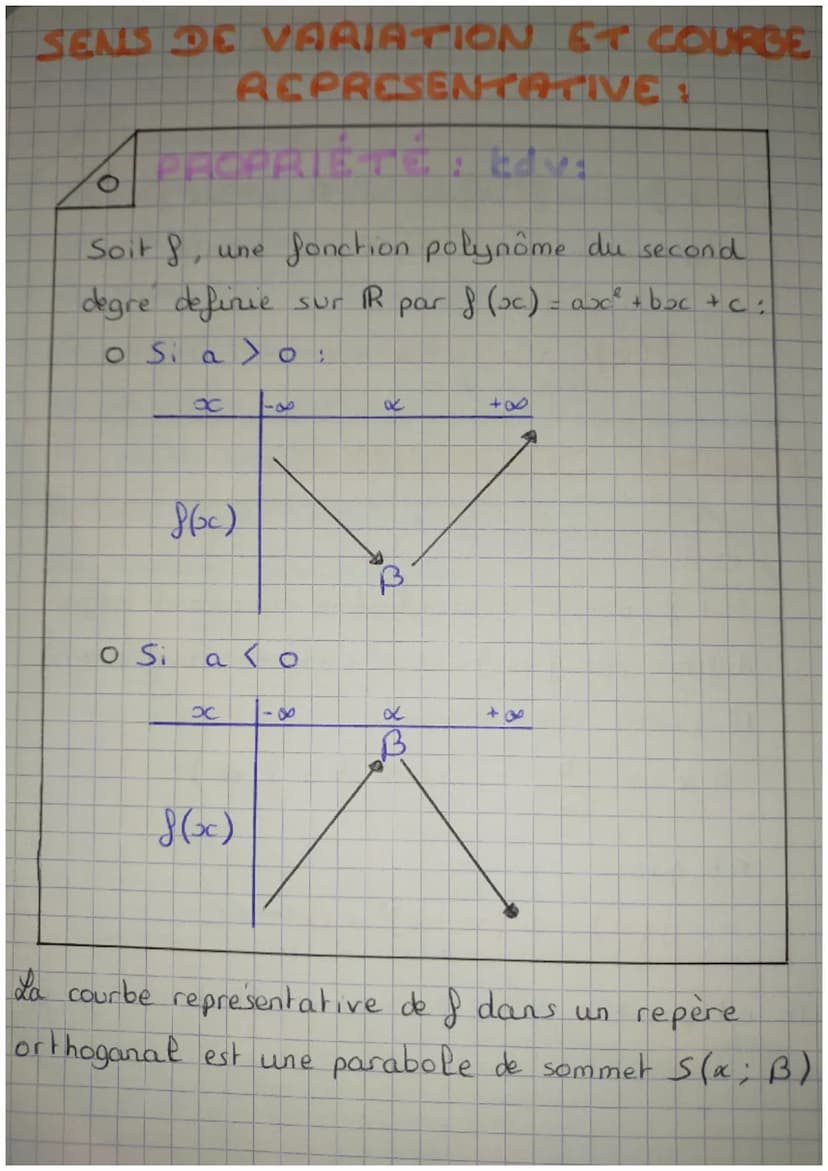 SENS DE VARIATION ET COURBE
REPRESENTATIVE :
PROPRIÉTÉ : tdv :
Soit f, une fonction polynôme du second
degré definie sur ℝ par f(x) = ax² + bx + c :
o Si a > 0 :
x -∞ α +∞
f(x)
β
o Si a < 0
x -∞ α +∞
β
f(x)
La courbe représentative de f dans un repère
orthoganal est une parabole de sommet S(α ; β)